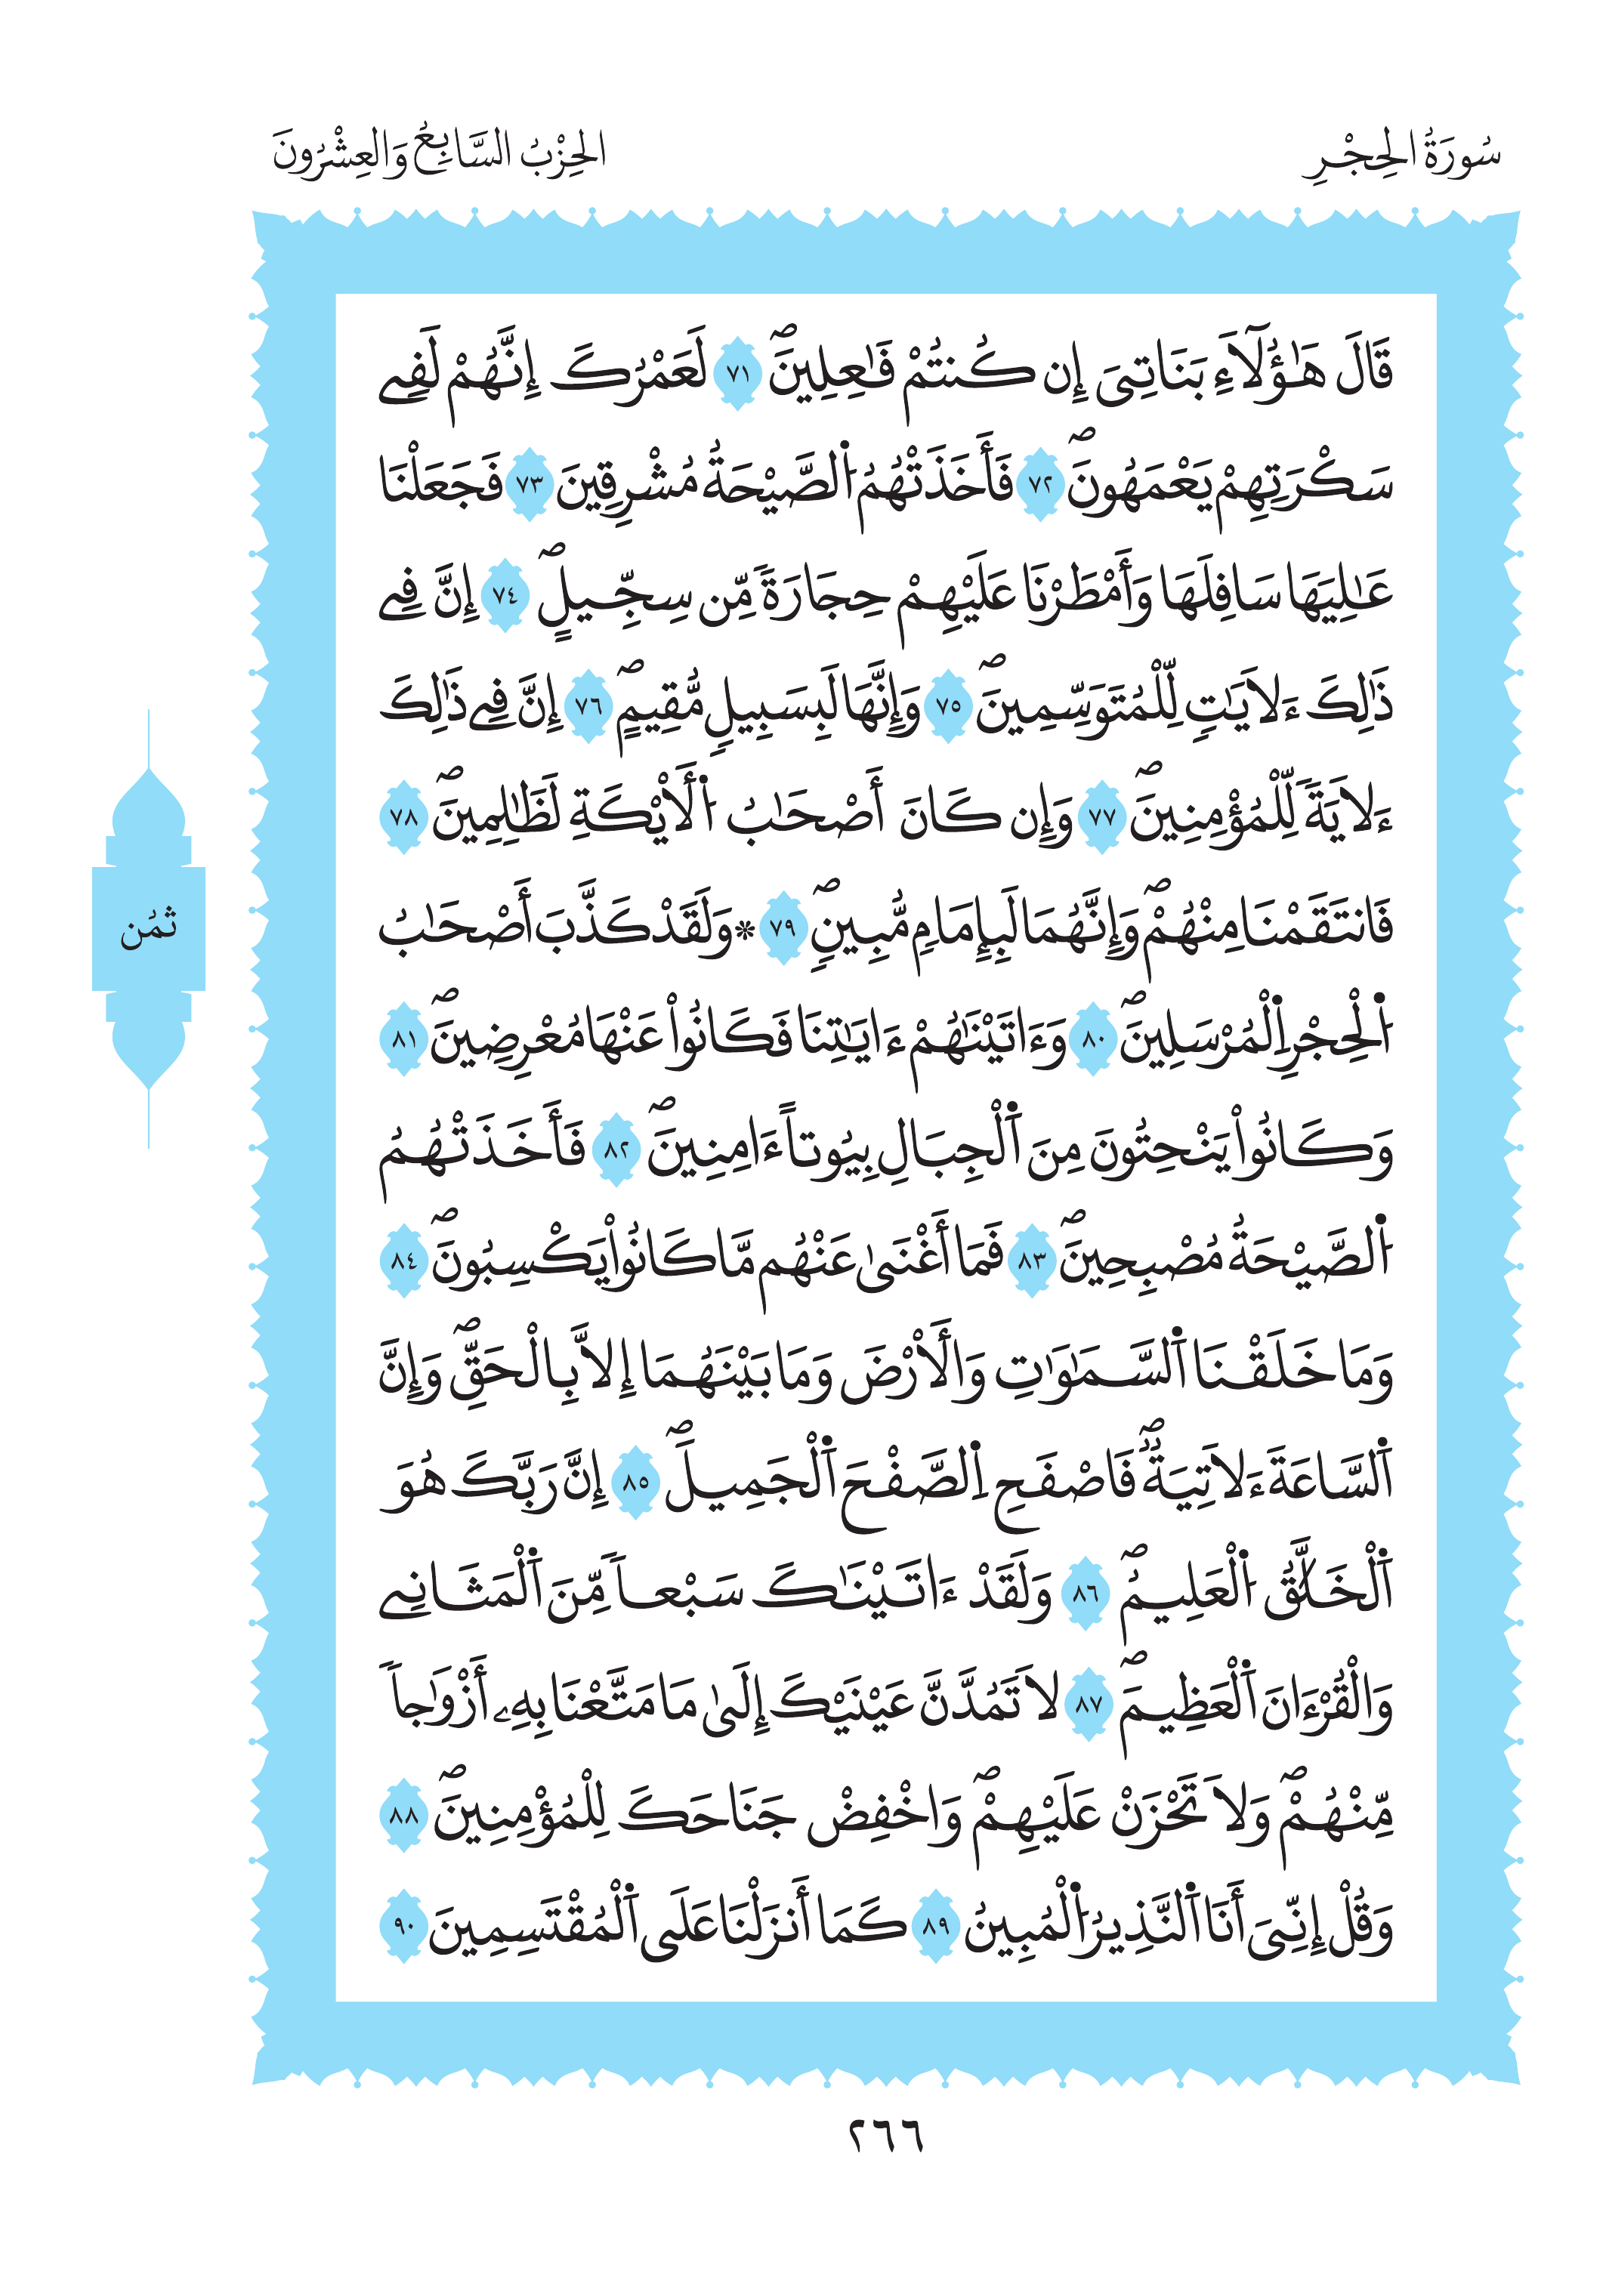 سُورَةُ الحِجْرِ
الحِزْبُ السَّابِعُ وَالعِشْرُونَ
قَالَ هَٰٓؤُلَآءِ بَنَاتِىَ إِن كُنتُمْ فَٰعِلِينَۖ ٧١ لَعَمْرُكَ إِنَّهُمْ لَفِے
سَكْرَتِهِمْ يَعْمَهُونَۖ ٧٢ فَأَخَذَتْهُمُ اُ۬لصَّيْحَةُ مُشْرِقِينَ ٧٣ فَجَعَلْنَا
عَٰلِيَهَا سَافِلَهَا وَأَمْطَرْنَا عَلَيْهِمْ حِجَارَةٗ مِّن سِجِّيلٍۖ ٧٤ إِنَّ فِے
ذَٰلِكَ ءَلَايَٰتٖ لِّلْمُتَوَسِّمِينَۖ ٧٥ وَإِنَّهَا لَبِسَبِيلٖ مُّقِيمٍۖ ٧٦ إِنَّ فِے ذَٰلِكَ
ءَلَايَةٗ لِّلْمُؤْمِنِينَۖ ٧٧ وَإِن كَانَ أَصْحَٰبُ اُ۬لَأيْكَةِ لَظَٰلِمِينَۖ ٧٨
فَانتَقَمْنَا مِنْهُمْۖ وَإِنَّهُمَا لَبِإِمَامٖ مُّبِينٖۖ ٧٩ ۞وَلَقَدْ كَذَّبَ أَصْحَٰبُ
اُ۬لْحِجْرِ اِ۬لْمُرْسَلِينَۖ ٨٠ وَءَاتَيْنَٰهُمْ ءَايَٰتِنَا فَكَانُواْ عَنْهَا مُعْرِضِينَۖ ٨١
وَكَانُواْ يَنْحِتُونَ مِنَ اَ۬لْجِبَالِ بِيُوتاً ءَامِنِينَۖ ٨٢ فَأَخَذَتْهُمُ
اُ۬لصَّيْحَةُ مُصْبِحِينَۖ ٨٣ فَمَا أَغْنَىٰ عَنْهُم مَّا كَانُواْ يَكْسِبُونَۖ ٨٤
وَمَا خَلَقْنَا اَ۬لسَّمَٰوَٰتِ وَالَأرْضَ وَمَا بَيْنَهُمَا إِلَّا بِالْحَقِّۖ وَإِنَّ
اَ۬لسَّاعَةَ ءَلَاتِيَةٞۖ فَاصْفَحِ اِ۬لصَّفْحَ اَ۬لْجَمِيلَۖ ٨٥ إِنَّ رَبَّكَ هُوَ
اَ۬لْخَلَّٰقُ اُ۬لْعَلِيمُۖ ٨٦ وَلَقَدْ ءَاتَيْنَٰكَ سَبْعاٗ مِّنَ اَ۬لْمَثَانِے
وَالْقُرْءَانَ اَ۬لْعَظِيمَۖ ٨٧ لَا تَمُدَّنَّ عَيْنَيْكَ إِلَىٰ مَا مَتَّعْنَا بِهِۦ أَزْوَٰجاٗ
مِّنْهُمْۖ وَلَا تَحْزَنْ عَلَيْهِمْۖ وَاخْفِضْ جَنَاحَكَ لِلْمُؤْمِنِينَۖ ٨٨
وَقُلْ إِنِّىَ أَنَا اَ۬لنَّذِيرُ اُ۬لْمُبِينُ ٨٩ كَمَا أَنزَلْنَا عَلَى اَ۬لْمُقْتَسِمِينَ ٩٠
ثُمُن
٢٦٦